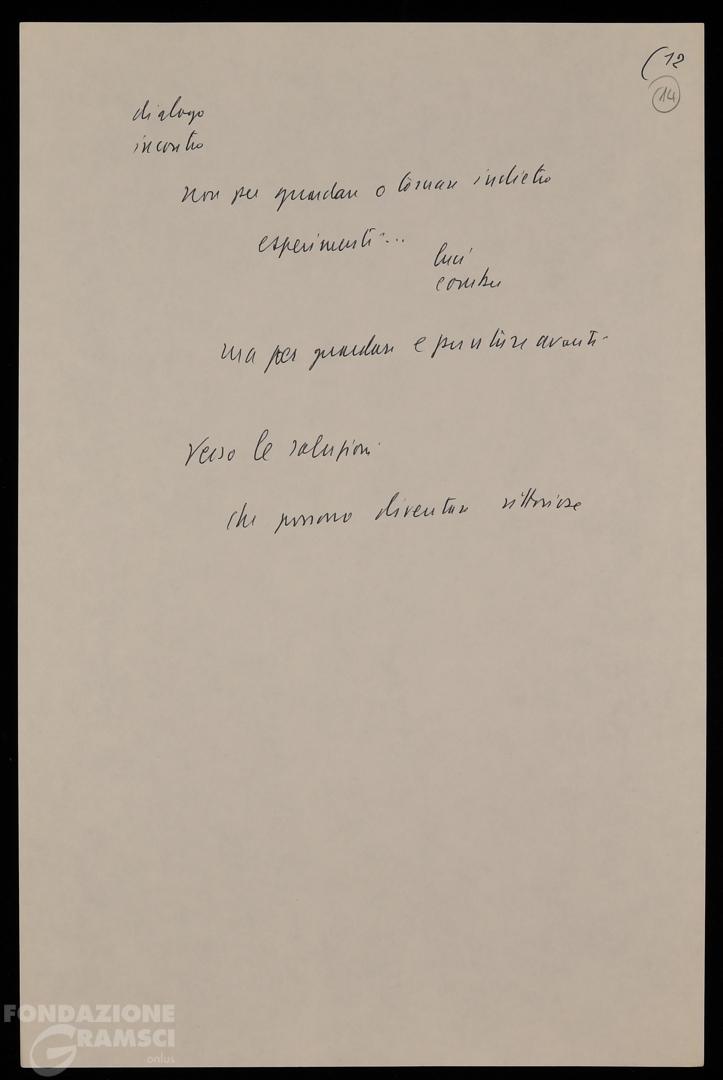 (12
14
dialogo
incontro
non per guardare o tornare indietro
esperimenti...
luci
ombre
ma per guardare e andare avanti
verso le soluzioni
che possono diventare vittoriose
FONDAZIONE
GRAMSCI
onlus